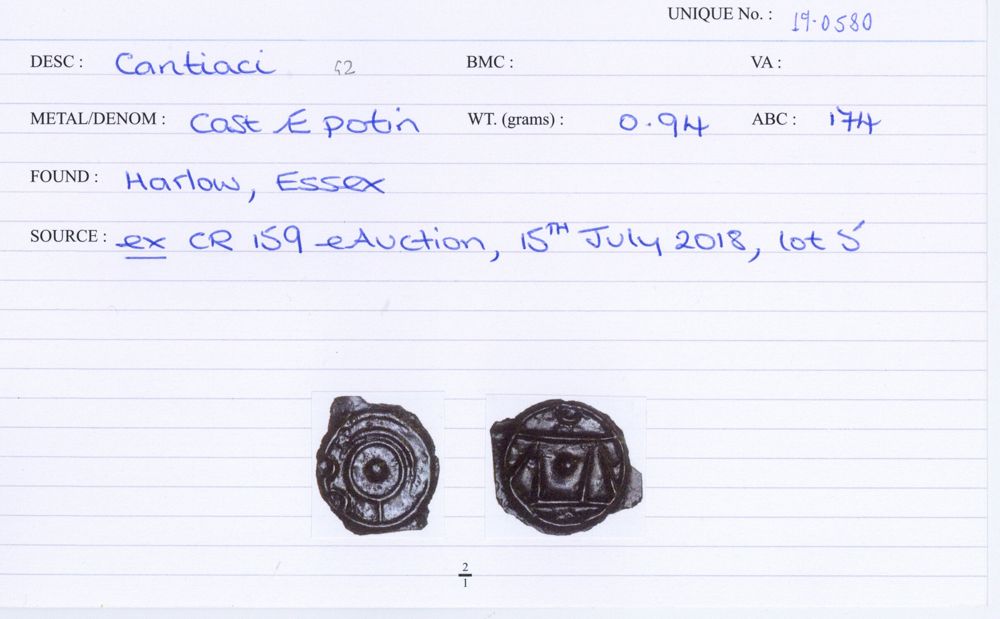 UNIQUE No. : 19.0580
DESC : Cantiaci 42 BMC : VA :
METAL/DENOM : Cast Æ potin WT. (grams) : 0.94 ABC : 174
FOUND : Harlow, Essex
SOURCE : ex CR 159 eAuction, 15TH July 2018, lot 5
2
1